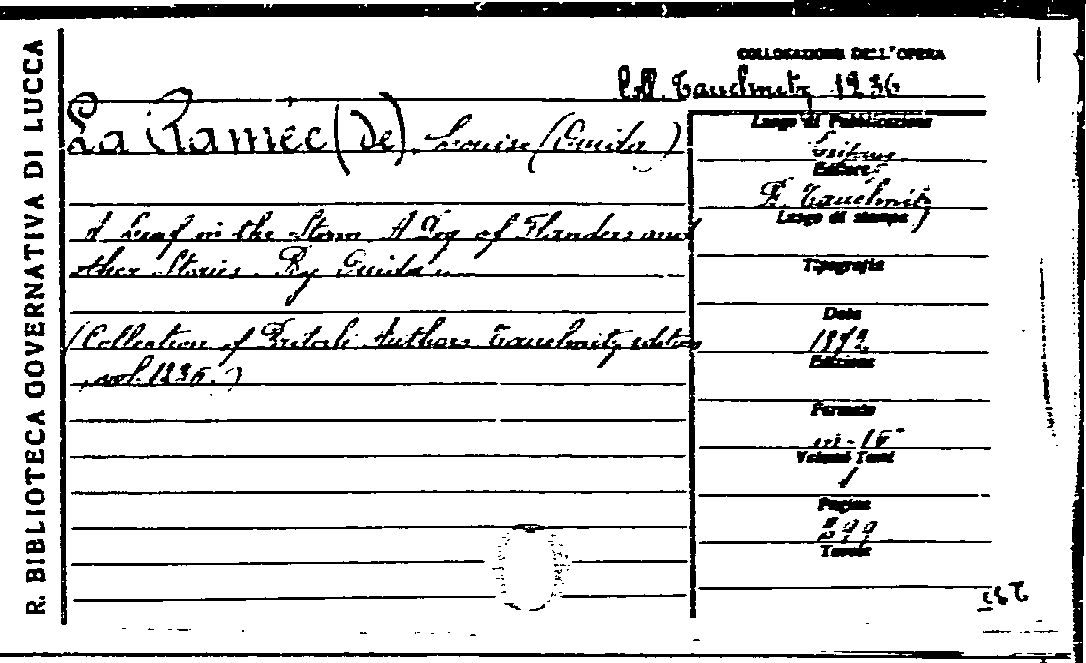 R. BIBLIOTECA GOVERNATIVA DI LUCCA
COLLOCAZIONE DELL'OPERA
Coll. Tauchnitz 1236
La Ramée (De) Louise (Ouida)
A Leaf in the Storm A Dog of Flanders and
other Stories. By Ouida
(Collection of British Authors Tauchnitz edition
vol. 1236.)
Luogo di Pubblicazione
Leipzig
Editore
B. Tauchnitz
Luogo di stampa
Tipografia
Data
1872
Edizione
Formato
in-16°
Volumi Tomi
1
Pagine
299
Tavole